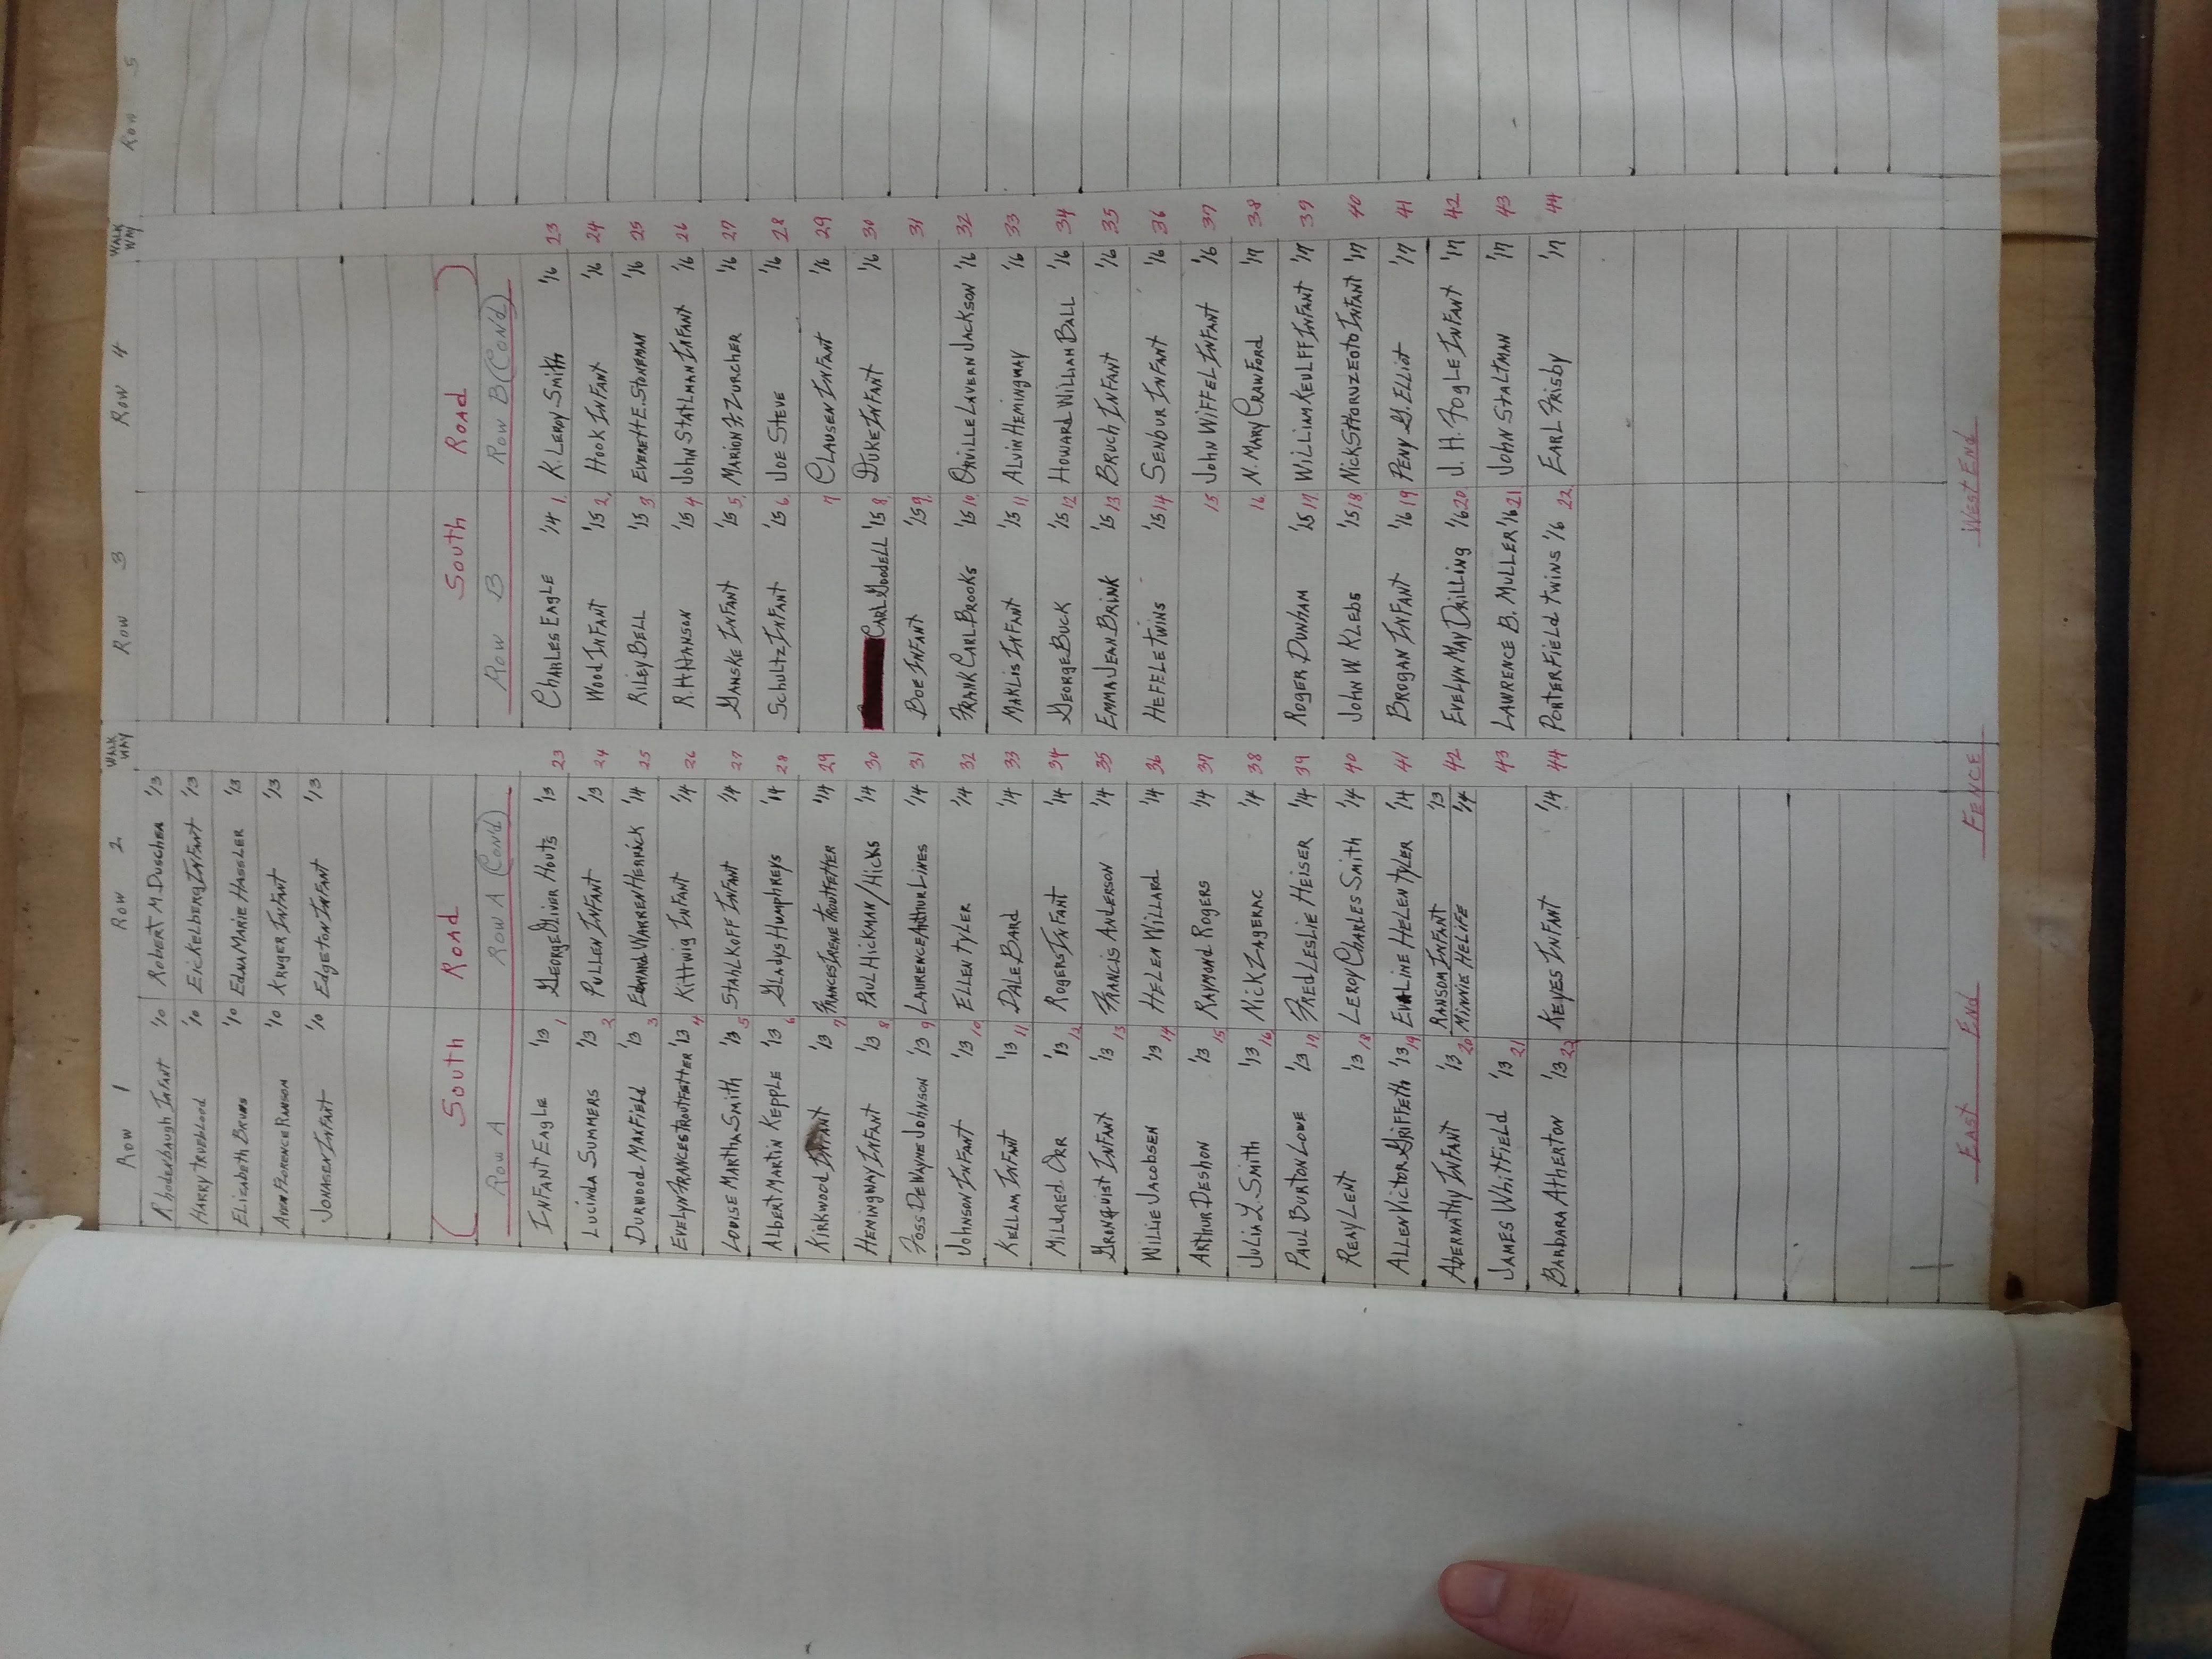 Row 1 Row 2 WALK WAY Row 3 Row 4 WALK WAY Row 5
Rhodenbaugh Infant '10 Robert M. Duschen '13
Harry Truelood '10 Eickelberg Infant '13
Elizabeth Bruns '10 Edna Marie Hassler '13
Ann Florence Ranson '10 Kruger Infant '13
Jonasen Infant '10 Edgeton Infant '13
( South Road South Road )
Row A Row A (Con'd) Row B Row B (Con'd)
Infant Eagle '13 1 George Oliver Houts '13 23 Charles Eagle '14 1. K. Leroy Smith '16 23
Lucinda Summers '13 2 Pullen Infant '13 24 Wood Infant '15 2. Hook Infant '16 24
Durwood Maxfield '13 3 Edward Warren Herrick '14 25 Riley Bell '15 3 Everett E. Stoneman '16 25
Evelyn Frances Troutfetter '13 4 Kittwig Infant '14 26 R. H. Hanson '15 4 John Statlman Infant '16 26
Louise Martha Smith '13 5 Stahlkoff Infant '14 27 Ganske Infant '15 5. Marion F. Zurcher '16 27
Albert Martin Kepple '13 6 Gladys Humphreys '14 28 Schultz Infant '15 6. Joe Steve '16 28
Kirkwood Infant '13 7 Frances Irene Troutfetter '14 29 7 Clausen Infant '16 29
Hemingway Infant '13 8 Paul Hickman/Hicks '14 30 Carl Goodell '15 8. Duke Infant '16 30
Foss DeWayne Johnson '13 9 Laurence Arthur Lines '14 31 Boe Infant '15 9. 31
Johnson Infant '13 10 Ellen Tyler '14 32 Frank Carl Brooks '15 10 Orville Lavern Jackson '16 32
Kellam Infant '13 11 Dale Bard '14 33 Marlis Infant '15 11 Alvin Hemingway '16 33
Mildred Orr '13 12 Rogers Infant '14 34 George Buck '15 12 Howard William Ball '16 34
Granquist Infant '13 13 Francis Anderson '14 35 Emma Jean Brink '15 13 Bruch Infant '16 35
Willie Jacobsen '13 14 Helen Willard '14 36 Hefele Twins '15 14 Senbur Infant '16 36
Arthur Deshon '13 15 Raymond Rogers '14 37 15 John Wiffel Infant '16 37
Julia L. Smith '13 16 Nick Zagerac '14 38 16 N. Mary Crawford '17 38
Paul Burton Lowe '13 17 Fred Leslie Heiser '14 39 Roger Dunham '15 17 William Keulff Infant '17 39
Reay Lent '13 18 Leroy Charles Smith '14 40 John W. Klebs '15 18 Nick Sthoruzeoto Infant '17 40
Allen Victor Griffeth '13 19 Evaline Helen Tyler '14 41 Brogan Infant '16 19 Peny G. Elliot '17 41
Abernathy Infant '13 20 Ranson Infant '13 42 Evelyn May Drilling '16 20 J. H. Fogle Infant '17 42
Minnie Helife '14
James Whitfield '13 21 43 Lawrence B. Muller '16 21 John Staltman '17 43
Barbara Atherton '13 22 Keyes Infant '14 44 Porterfield Twins '16 22 Earl Frisby '17 44
East End Fence West End